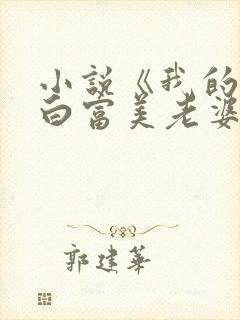 小説《我的
白富美老婆
郭建華